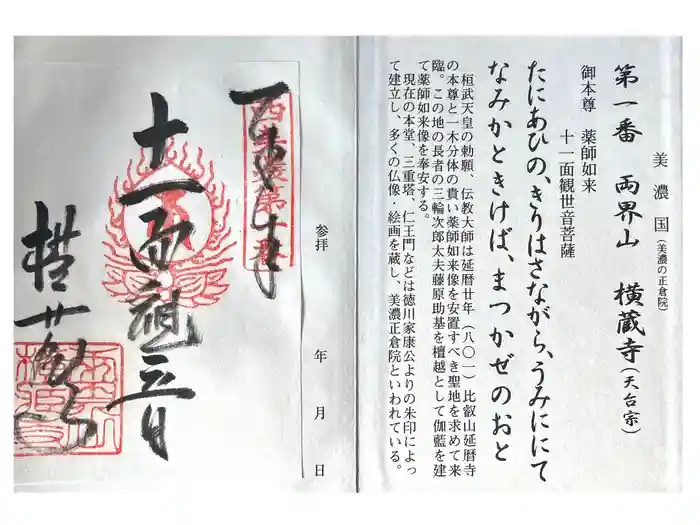 美濃国(美濃の正倉院)
第一番 両界山 横蔵寺(天台宗)
御本尊 薬師如来
十一面観世音菩薩
たにあひの、きりはさながら、うみににて
なみかときけば、まつかぜのおと
桓武天皇の勅願、伝教大師は延暦廿年(八〇一)比叡山延暦寺
の本尊と一木分体の貴い薬師如来像を安置すべき聖地を求めて来
臨。この地の長者の三輪次郎太夫藤原助基を檀越として伽藍を建
て薬師如来像を奉安する。
現在の本堂、三重塔、仁王門などは徳川家康公よりの朱印によっ
て建立し、多くの仏像・絵画を蔵し、美濃正倉院といわれている。
参拝 年 月 日
十一面観音
横蔵寺